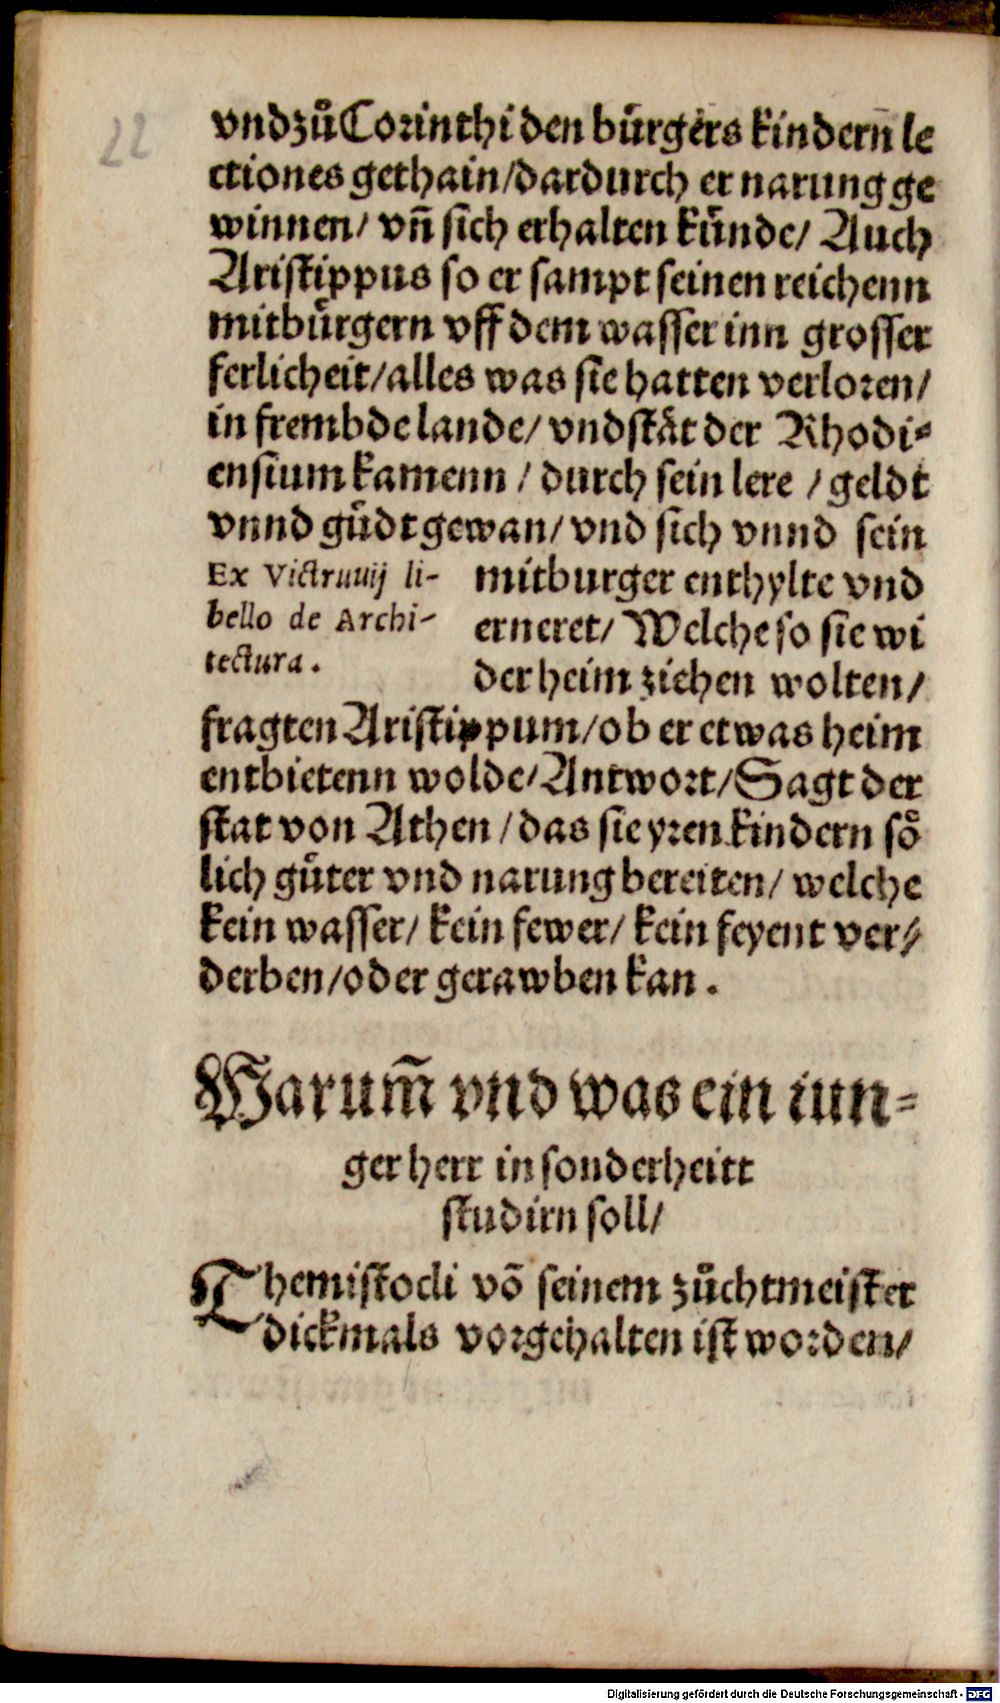 22
vnd zuͦ Corinthi den bürgers kindern̄ le
ctiones gethain/dardurch er narung ge
winnen/ vn̄ sich erhalten künde/ Auch
Aristippus so er sampt seinen reichenn
mitbürgern vff dem wasser inn grosser
ferlicheit/alles was sie hatten verloren/
in frembde lande/ vnd stät der Rhodi⸗
ensium kamenn / durch sein lere / geldt
vnnd guͦdt gewan/ vnd sich vnnd sein
Ex Victruuij li-
bello de Archi-
tectura.
mitburger enthylte vnd
erneret/ Welche so sie wi
der heim ziehen wolten/
fragten Aristippum/ob er etwas heim
entbietenn wolde/Antwort/Sagt der
stat von Athen /das sie yren kindern soͤ
lich guͤter vnd narung bereiten/ welche
kein wasser/ kein fewer/ kein feyent ver⸗
derben/oder gerawben kan.
Warum̄ vnd was ein iun⸗
ger herr in sonderheitt
studirn soll/
Themistocli vō seinem zuͦchtmeister
dickmals vorgehalten ist worden/
Digitalisierung gefördert durch die Deutsche Forschungsgemeinschaft - DFG